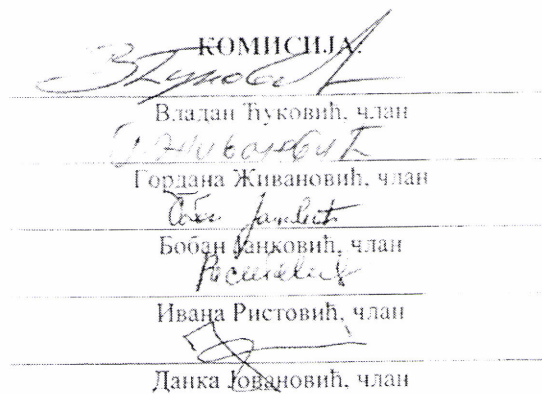 КОМИСИЈА:
Владан Ћуковић, члан
Гордана Живановић, члан
Бобан Јанковић, члан
Ивана Ристовић, члан
Данка Јовановић, члан